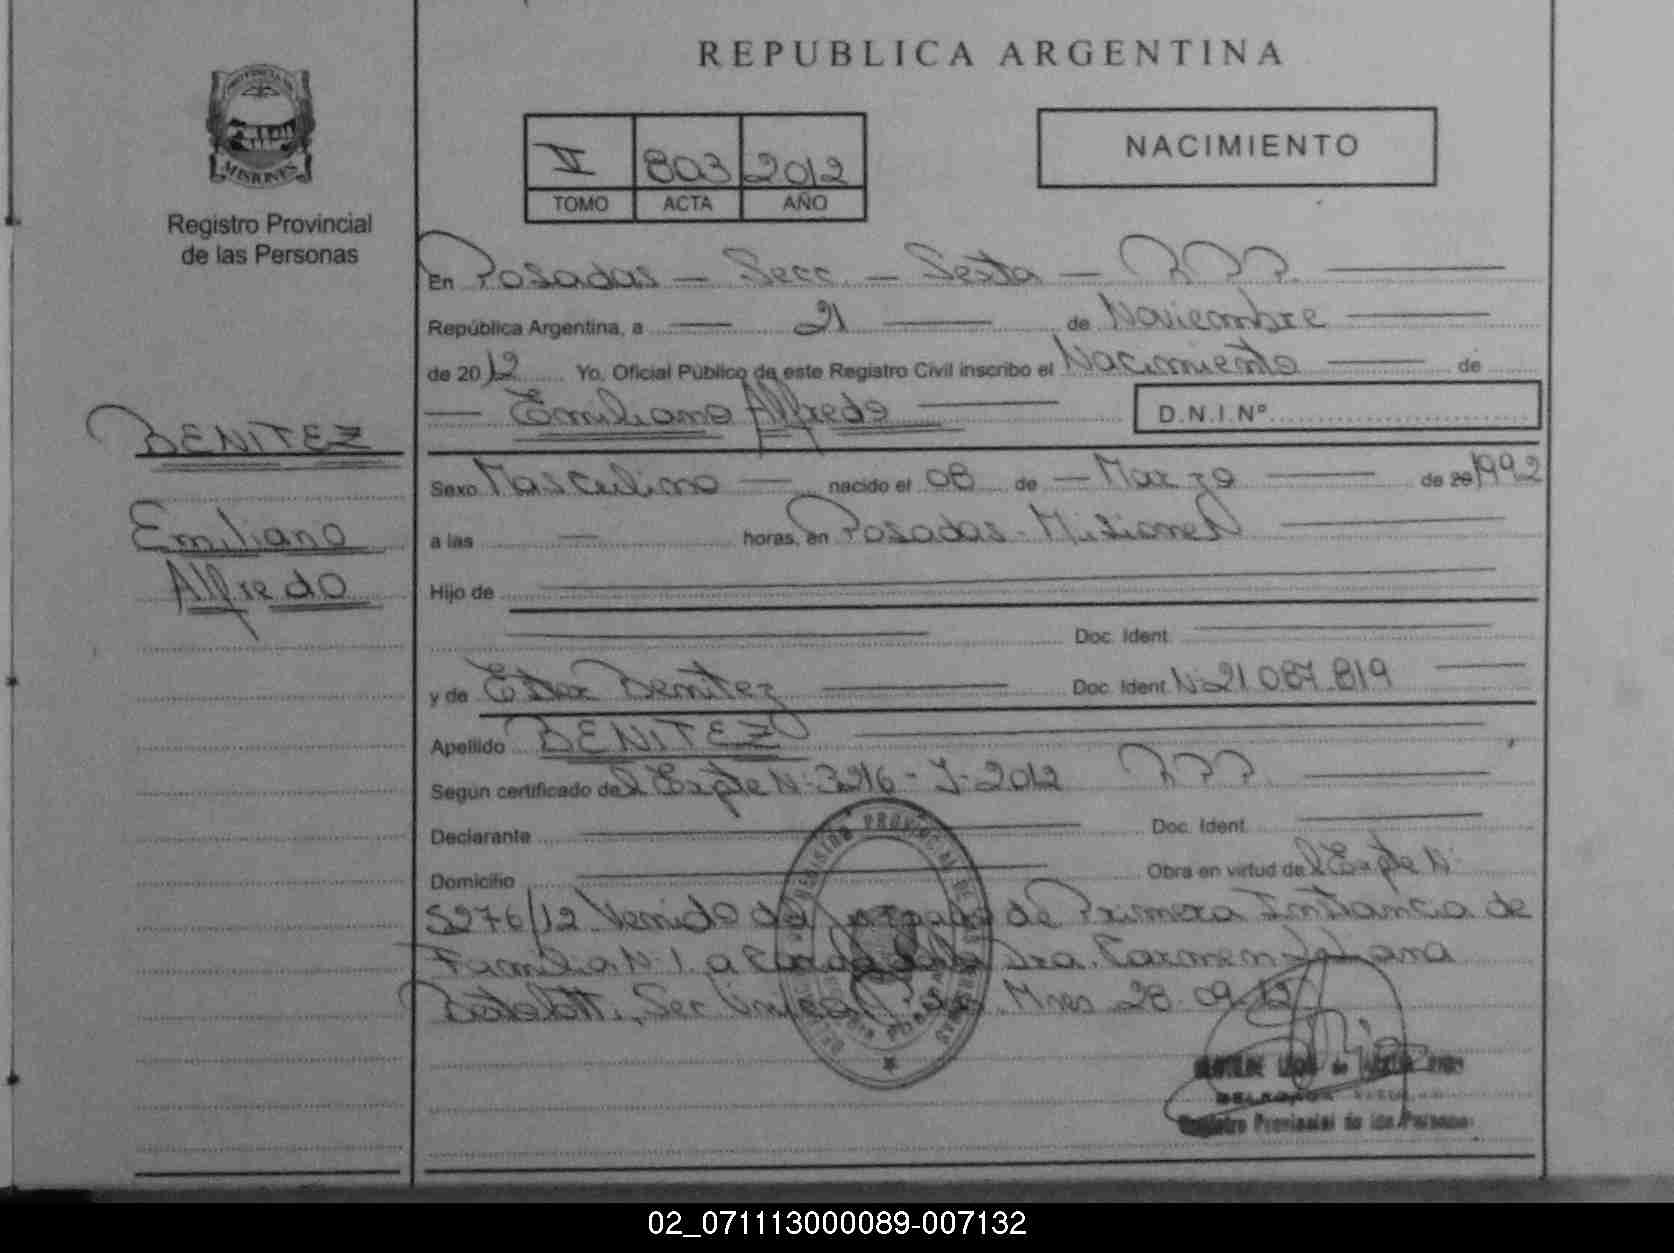 REPUBLICA ARGENTINA
PROVINCIA DE
MISIONES
Registro Provincial
de las Personas
VI 803 2012
TOMO ACTA AÑO
NACIMIENTO
En Posadas - Secc. - Sexta -
República Argentina, a 21 de Noviembre
de 2012 Yo, Oficial Público de este Registro Civil inscribo el Nacimiento de
Emiliano Alfredo D.N.I.Nº
BENITEZ
Emiliano
Alfredo
Sexo Masculino nacido el 08 de Marzo de 20 1992
a las horas, en Posadas - Misiones
Hijo de
Doc. Ident.
y de Ester Benitez Doc. Ident. Nº 21.087.819
Apellido BENITEZ
Según certificado del Expte Nº 3216 - J - 2012
Declarante Doc. Ident.
Domicilio Obra en virtud del Expte Nº
5276/12 Venido del Juzgado de Primera Instancia de
Familia Nº 1 a Cargo de la Dra. Carmen
Sec. Única Pdas. Mnes 28.09.12
Registro Provincial de las Personas
02_071113000089-007132